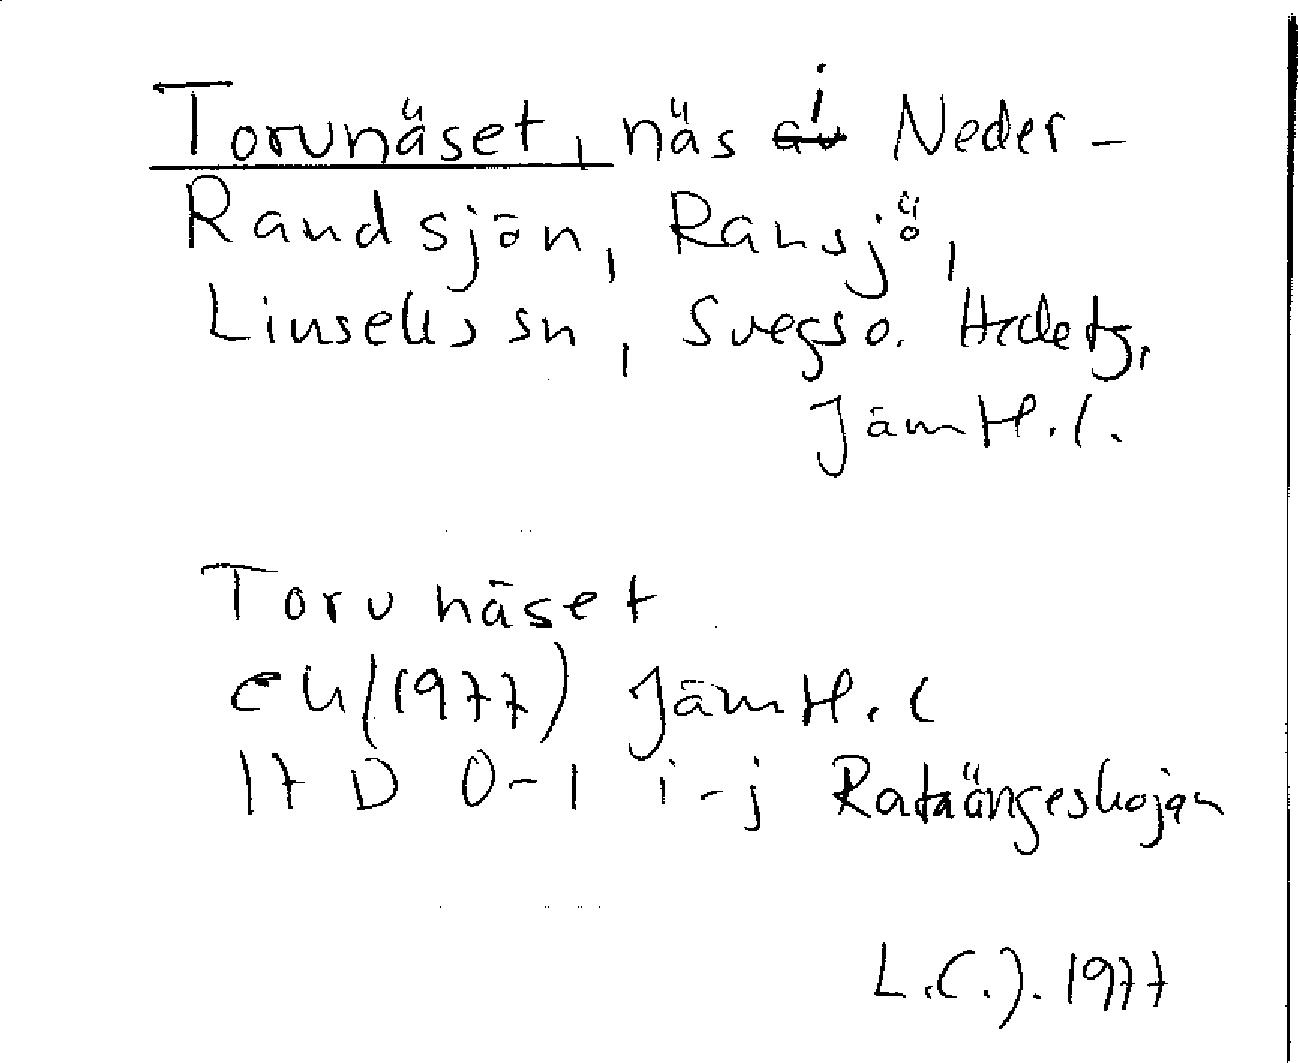 Torvnäset, näs i Neder-
Randsjön, Ransjö,
Linsells sn, Svegs o. Hedetg,
Jämtl. l.
Torvnäset
ek (1977) Jämtl. l
17 D 0-1 i-j Rataängeskojan
L.C.J. 1977